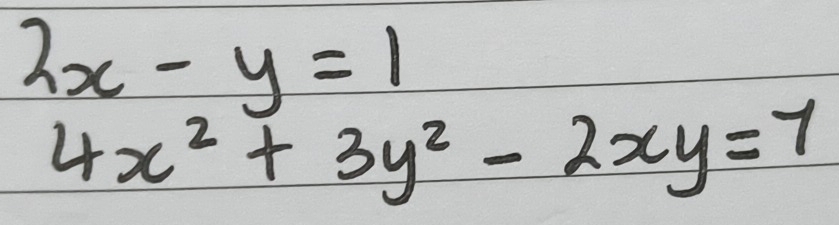 2x - y = 1
4x² + 3y² - 2xy = 7